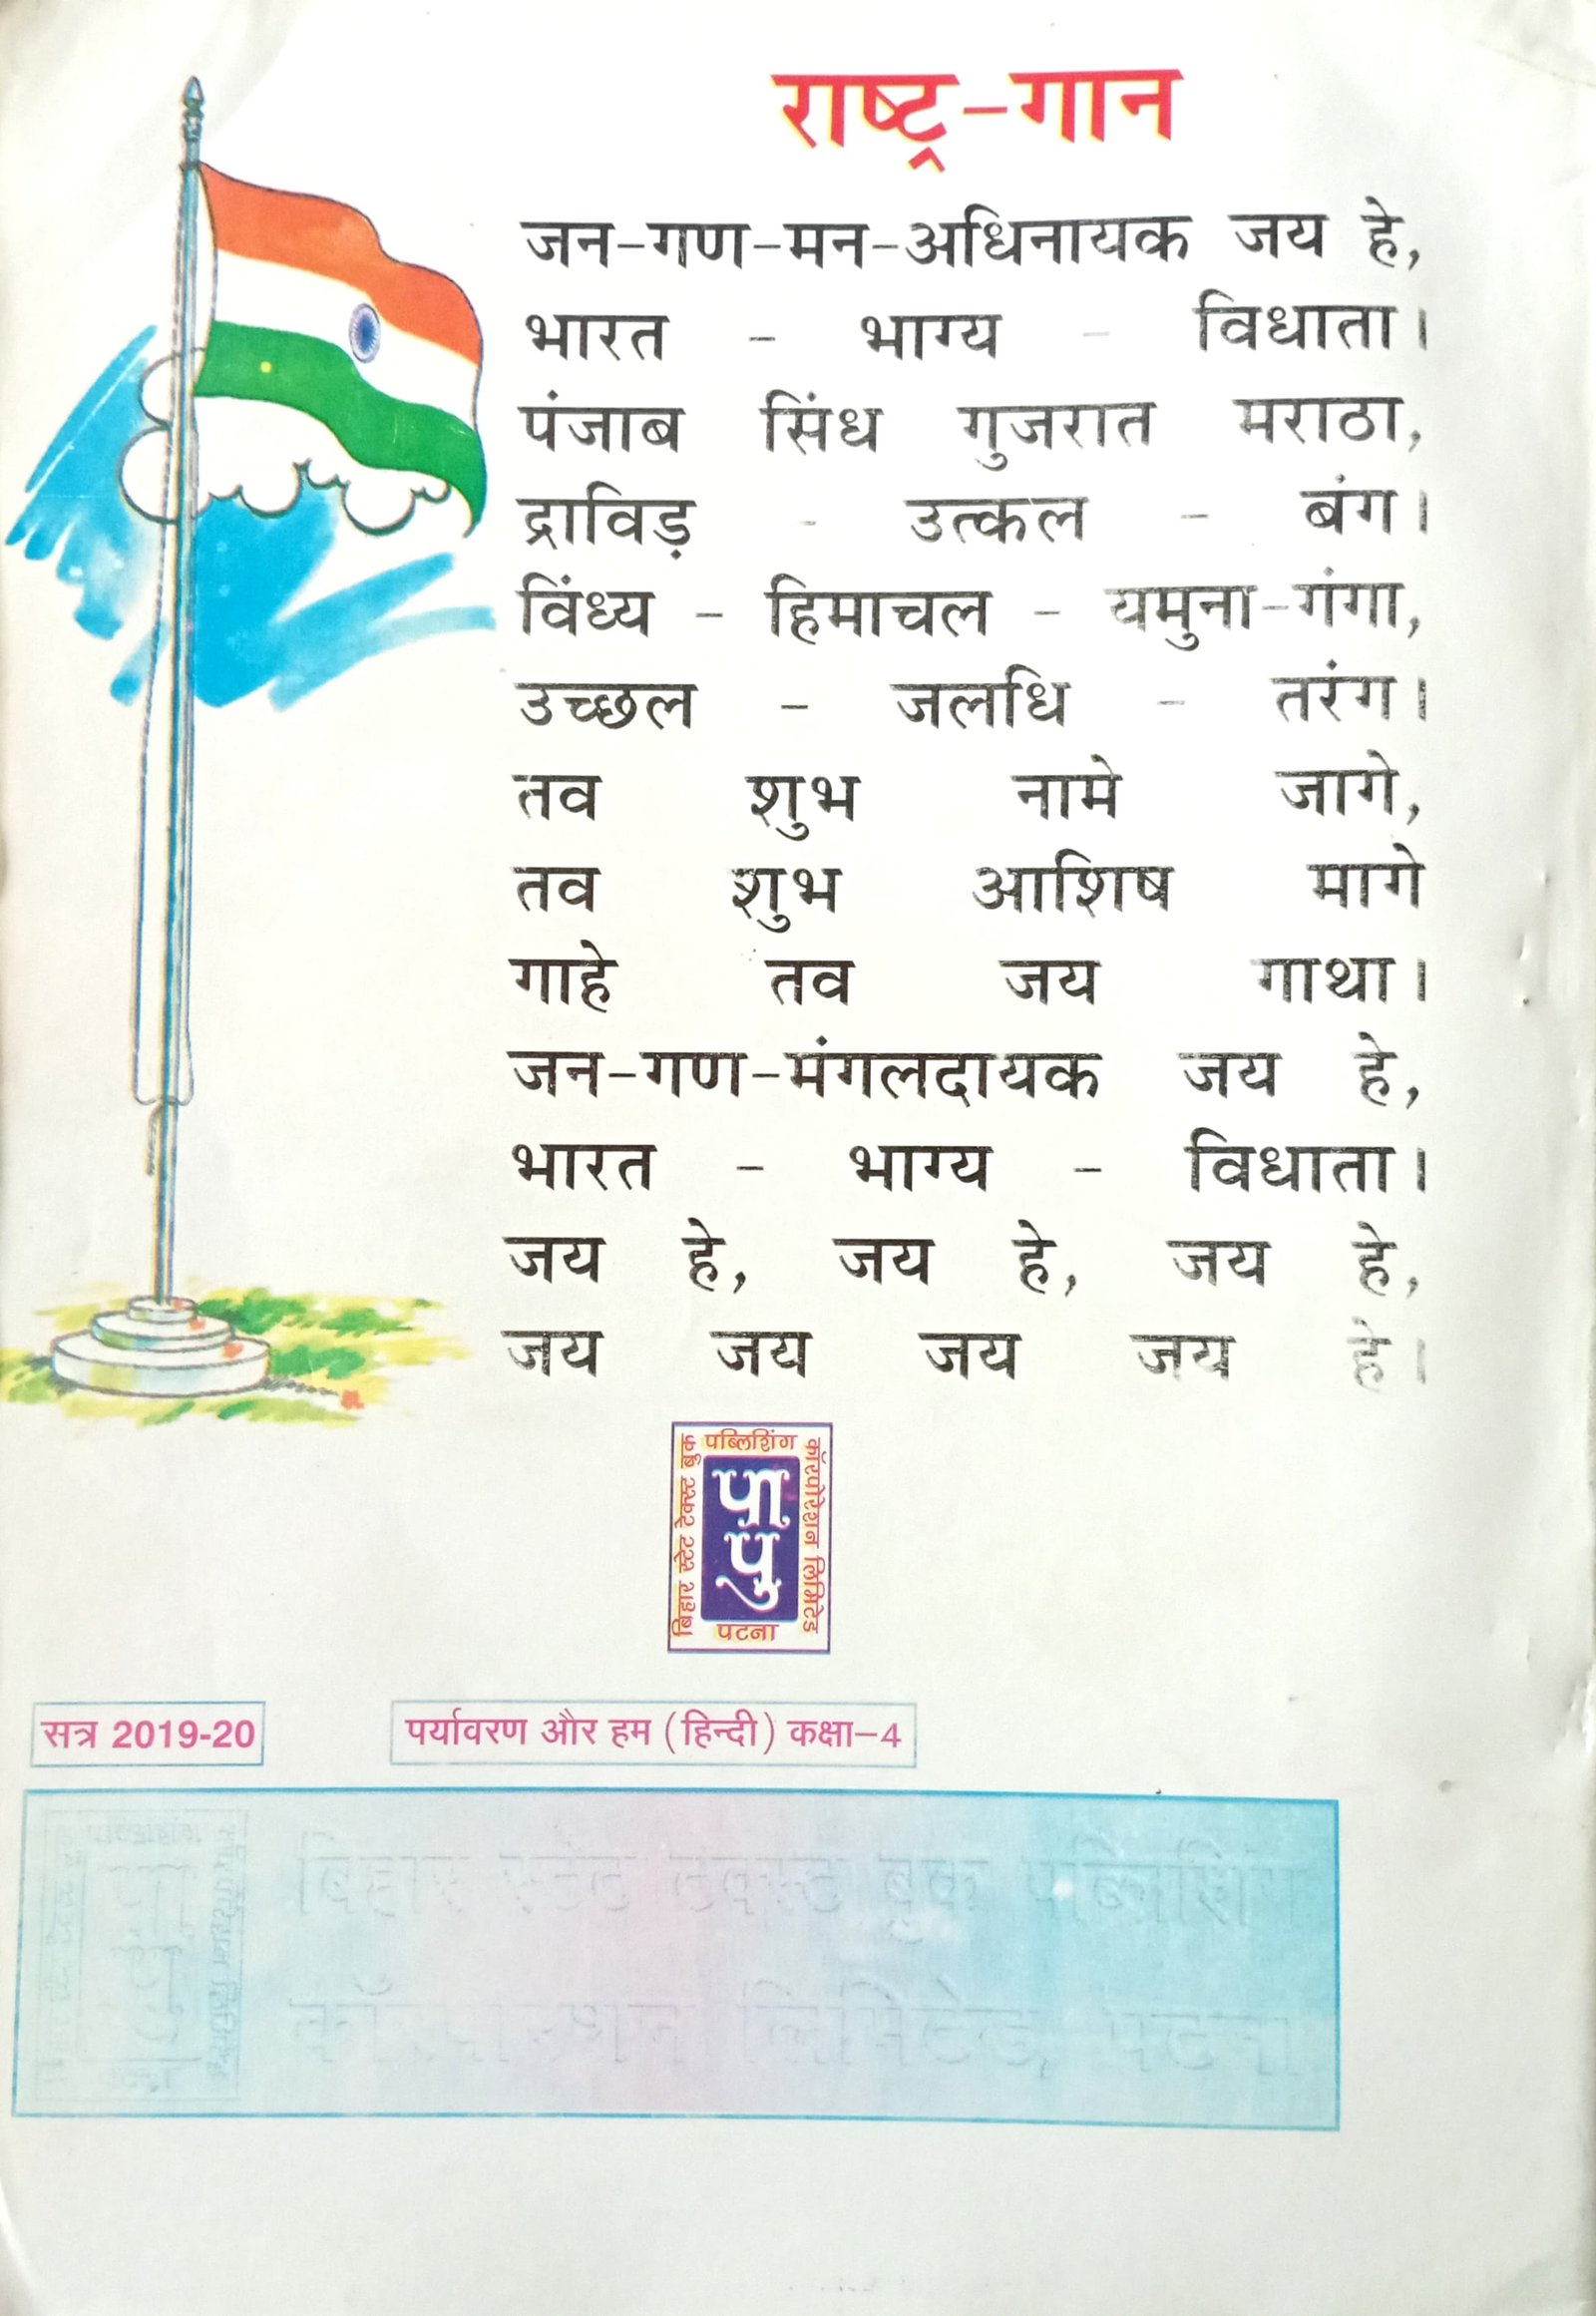 राष्ट्र-गान
जन-गण-मन-अधिनायक जय हे,
भारत - भाग्य - विधाता।
पंजाब सिंध गुजरात मराठा,
द्राविड़ - उत्कल - बंग।
विंध्य - हिमाचल - यमुना-गंगा,
उच्छल - जलधि - तरंग।
तव शुभ नामे जागे,
तव शुभ आशिष मागे
गाहे तव जय गाथा।
जन-गण-मंगलदायक जय हे,
भारत - भाग्य - विधाता।
जय हे, जय हे, जय हे,
जय जय जय जय हे।
बिहार स्टेट टेक्स्ट बुक
पब्लिशिंग
कॉरपोरेशन लिमिटेड
पा
पु
पटना
सत्र 2019-20
पर्यावरण और हम (हिन्दी) कक्षा-4
बिहार स्टेट टेक्स्ट बुक पब्लिशिंग
कॉरपोरेशन लिमिटेड, पटना